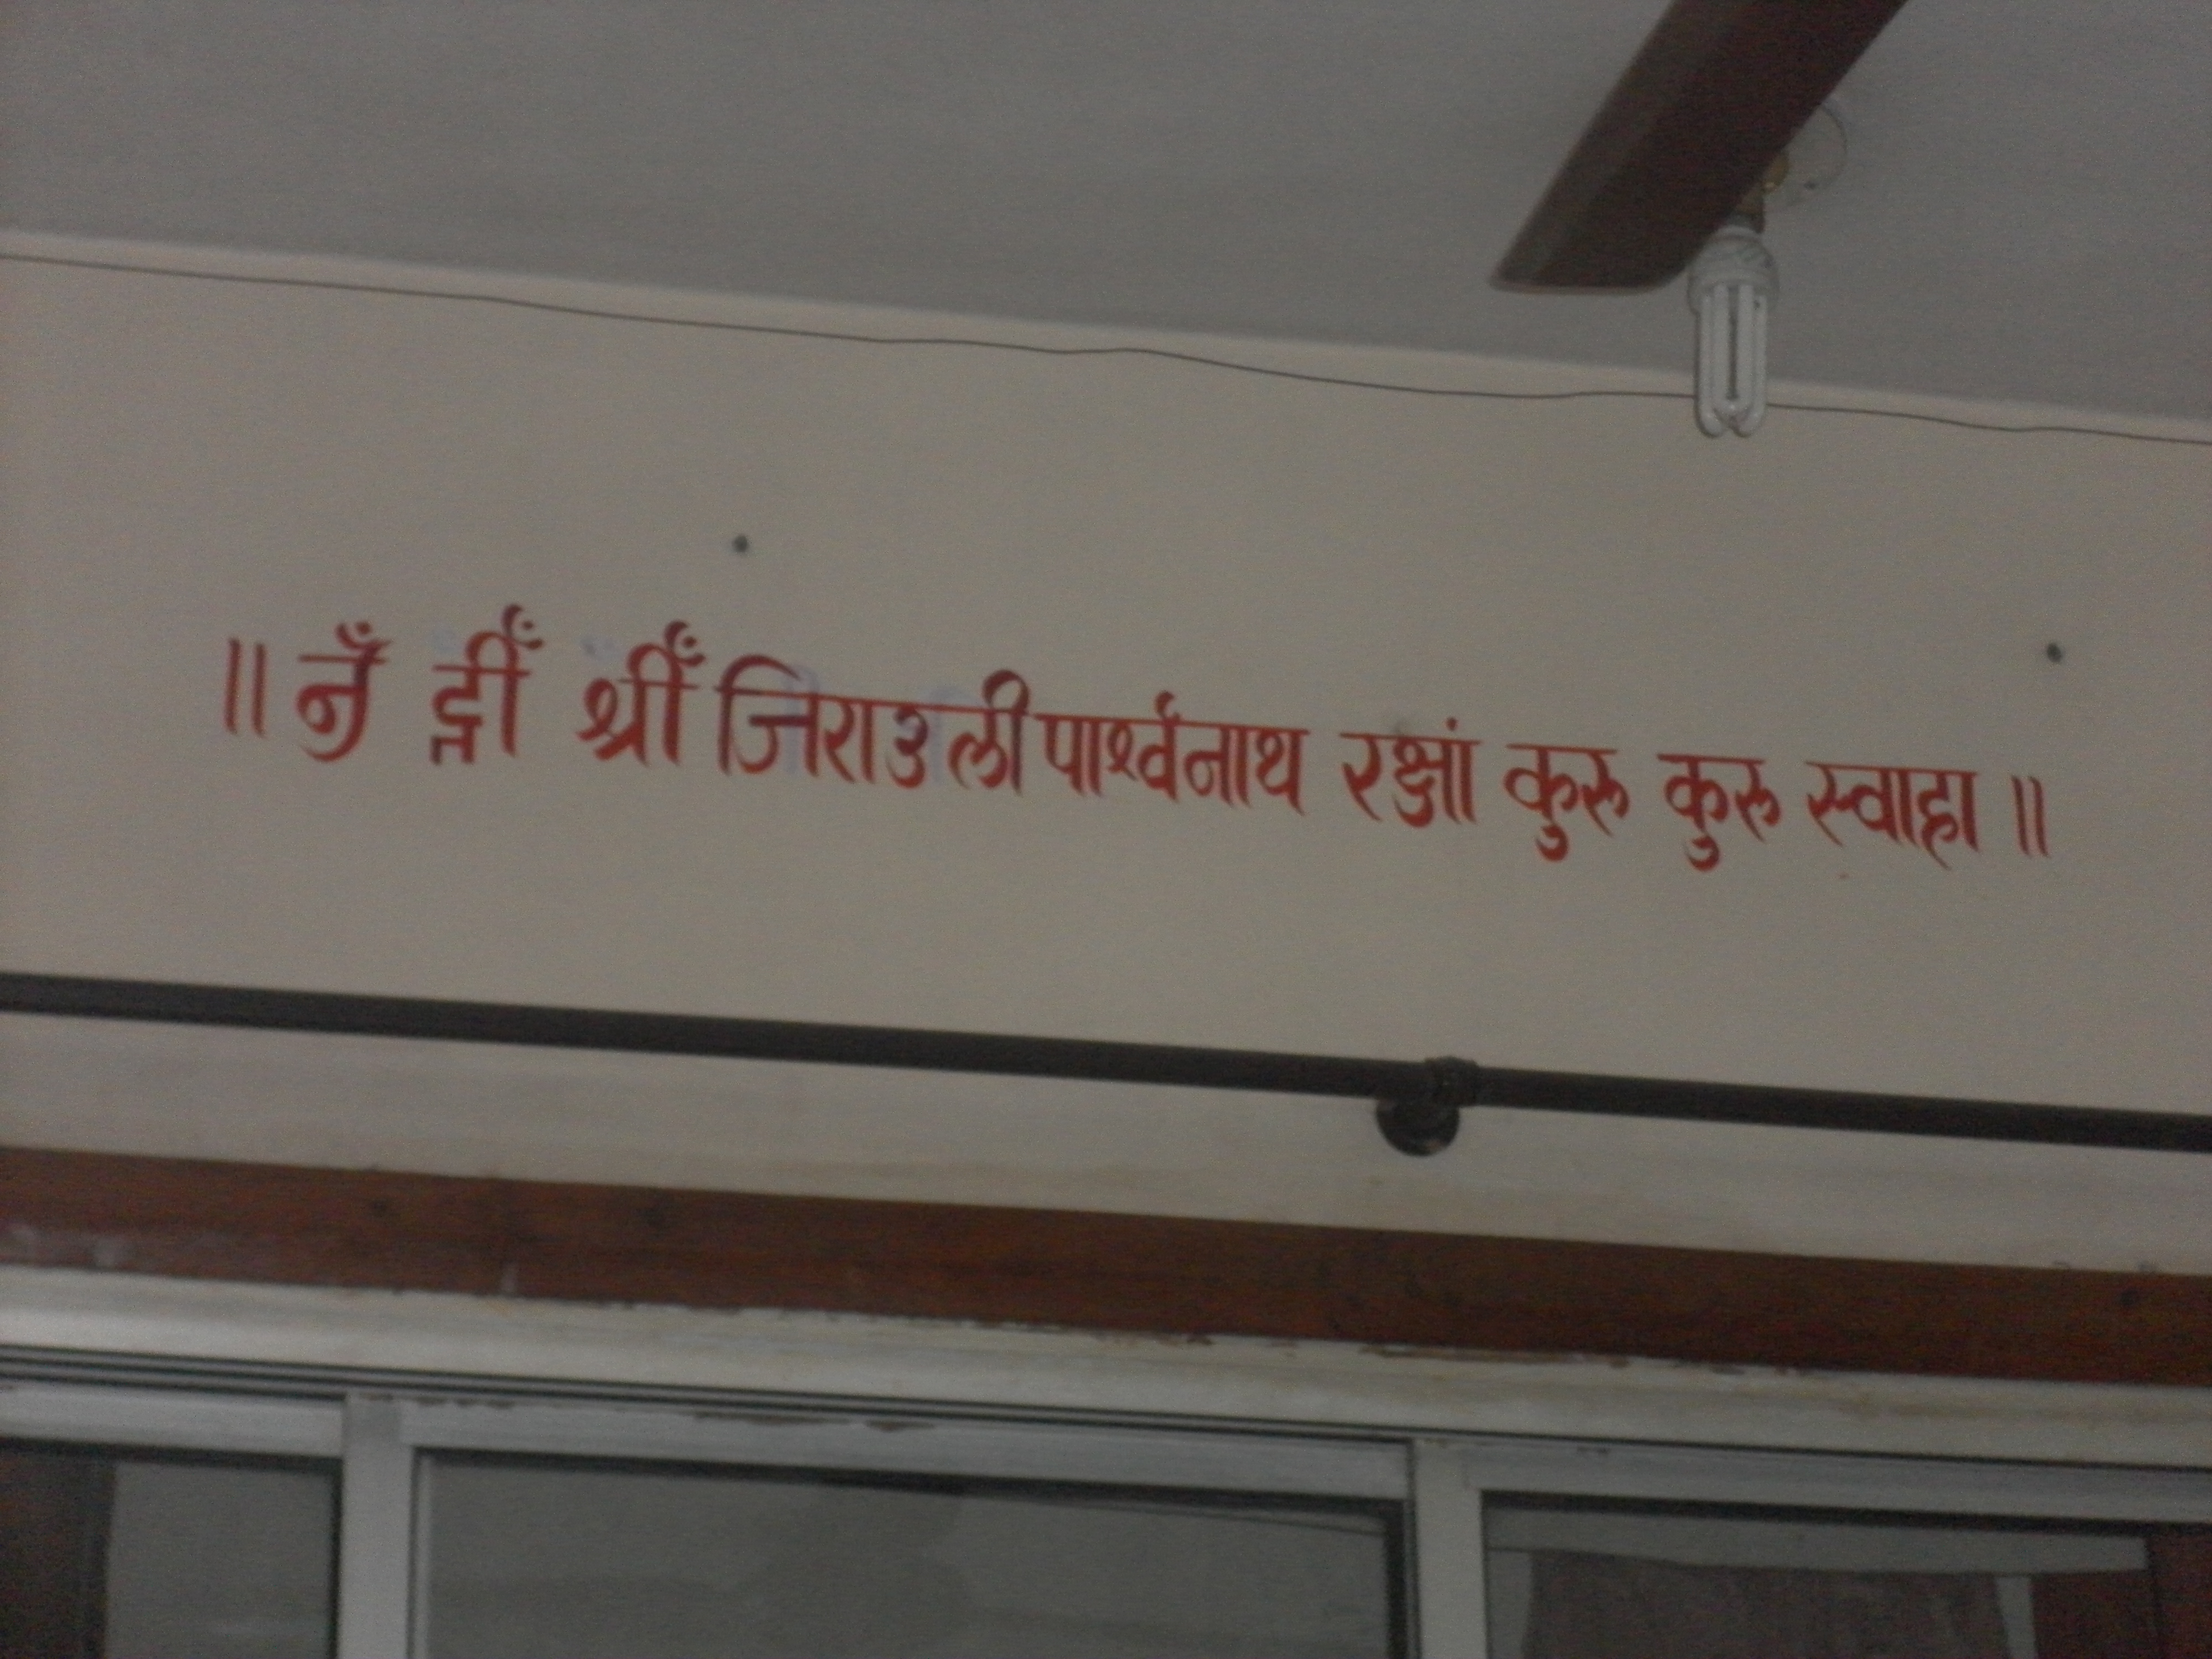 ॥ ॐ ह्रीँ श्रीँ जिराउली पार्श्वनाथ रक्षां कुरु कुरु स्वाहा ॥